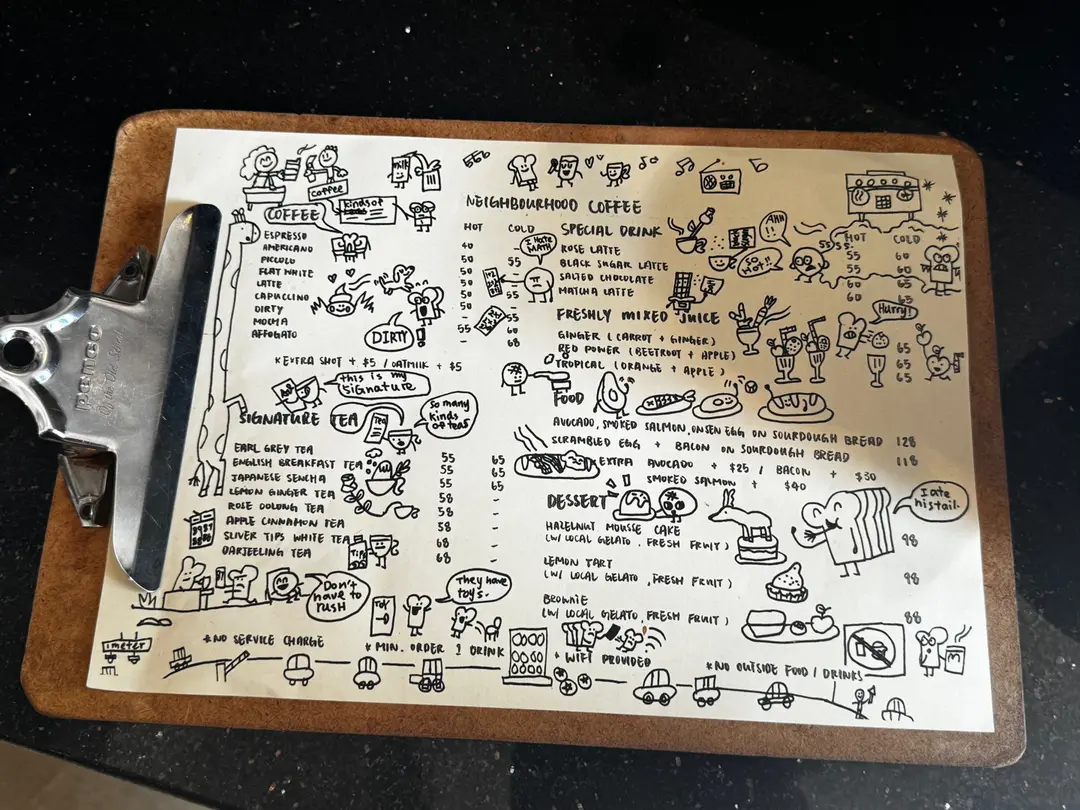 penco
milk
coffee
kinds of
NEIGHBOURHOOD COFFEE
COFFEE
HOT COLD
ESPRESSO 40
AMERICANO 50 55
PICCOLO 50 -
FLAT WHITE 50
LATTE 50 55
CAPPUCCINO 50
DIRTY -
MOCHA 55 60
AFFOGATO - 68
I HATE MATH
DIRTY!
*EXTRA SHOT + $5 / OATMILK + $5
this is my signature
So many kinds of teas
SIGNATURE TEA
TEA
EARL GREY TEA 55 65
ENGLISH BREAKFAST TEA 55 65
JAPANESE SENCHA 55 65
LEMON GINGER TEA 58 -
ROSE OOLONG TEA 58 -
APPLE CINNAMON TEA 58 -
SLIVER TIPS WHITE TEA 68 -
DARJEELING TEA 68 -
TIPS
Don't have to rush
TOY
They have toys.
SPECIAL DRINK
HOT COLD
ROSE LATTE 55 60
BLACK SUGAR LATTE 55 60
SALTED CHOCOLATE 55 60
MATCHA LATTE 60 65
AHH
SO HOT!!
SSSS..
FRESHLY MIXED JUICE
Hurry!
GINGER (CARROT + GINGER) 65
RED POWER (BEETROOT + APPLE) 65
TROPICAL (ORANGE + APPLE) 65
FOOD
AVOCADO, SMOKED SALMON, ONSEN EGG ON SOURDOUGH BREAD 128
SCRAMBLED EGG + BACON ON SOURDOUGH BREAD 118
EXTRA AVOCADO + $25 / BACON + $30
SMOKED SALMON + $40
DESSERT
I ate his tail.
HAZELNUT MOUSSE CAKE 98
(W/ LOCAL GELATO, FRESH FRUIT)
LEMON TART 98
(W/ LOCAL GELATO, FRESH FRUIT)
BROWNIE 88
(W/ LOCAL GELATO, FRESH FRUIT)
imeter
*NO SERVICE CHARGE
* MIN. ORDER 1 DRINK
* WIFI PROVIDED
*NO OUTSIDE FOOD / DRINKS